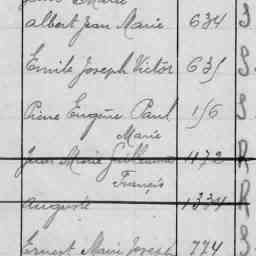 Albert Jean Marie 634 S
Emile Joseph Victor 635 S
Pierre Eugène Paul 156 S
Marie
Jean Marie Guillaume 1172 R
François
Auguste 1334 R
Ernest Marie Joseph 774 S